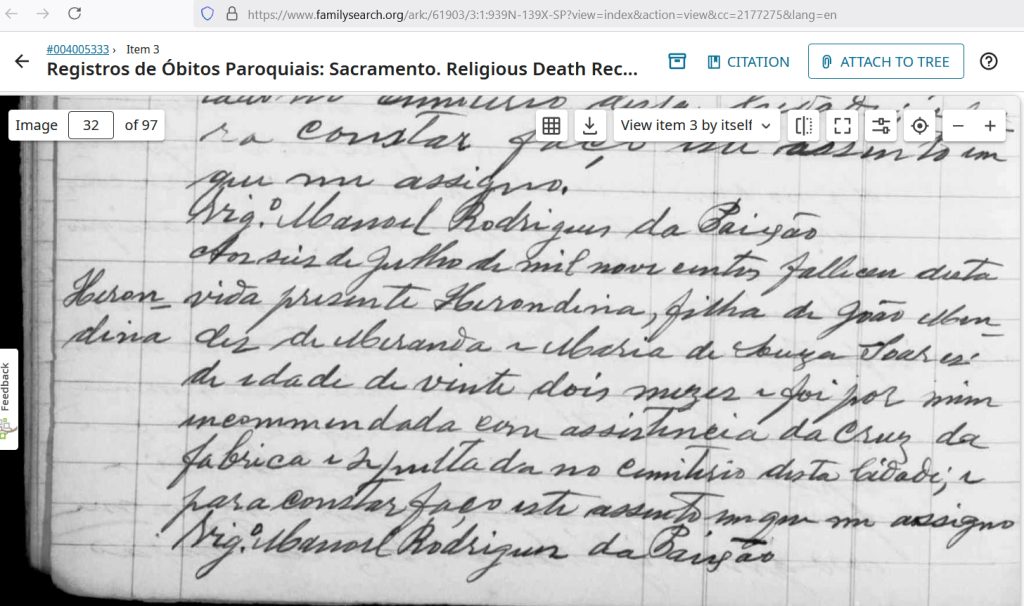 https://www.familysearch.org/ark:/61903/3:1:939N-139X-SP?view=index&action=view&cc=2177275&lang=en
#004005333 › Item 3
Registros de Óbitos Paroquiais: Sacramento. Religious Death Rec...
CITATION
ATTACH TO TREE
Image 32 of 97
View item 3 by itself
Feedback
ra constar faço este assento em
que me assigno.
Vigº. Manoel Rodrigues da Paixão
Aos seis de Julho de mil nove centos falleceu desta
Heron_ vida presente Herondina, filha de João Men_
dina dez de Meranda e Maria de Souza Soares:
de idade de vinte dois mezes e foi por mim
incommendada com assistencia da Cruz da
fabrica e sepultada no cimiterio desta Cidade; e
para constar faço este assento em que me assigno
Vigº. Manoel Rodrigues da Paixão